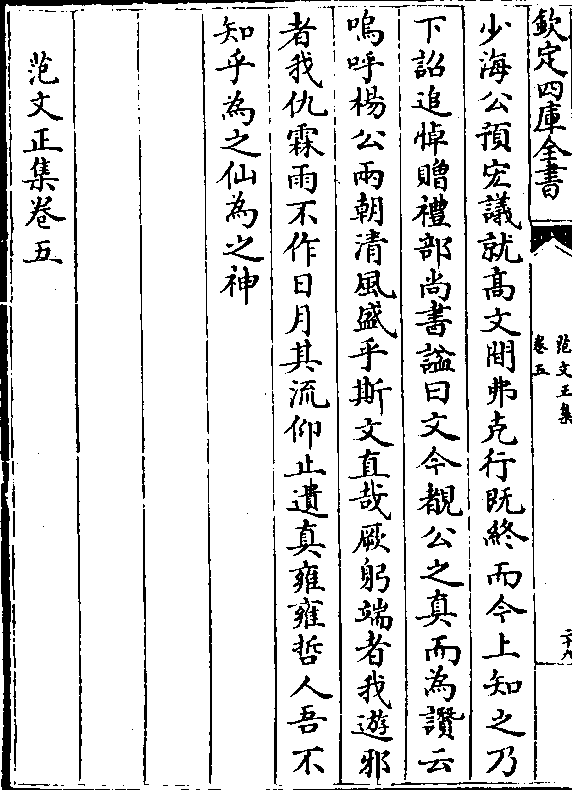 欽定四庫全書
范文正集
卷五
二十八
少海公預宏議就髙文間弗克行既終而今上知之乃
下詔追悼贈禮部尚書諡曰文今覩公之真而為讚云
嗚呼楊公兩朝清風盛乎斯文直哉厥躬端者我遊邪
者我仇霖雨不作日月其流仰止遺真雍雍哲人吾不
知乎為之仙為之神
范文正集卷五